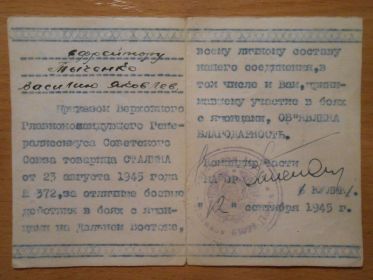 ефрейтору
Тыченко
Василию Яковлев.
Приказом Верховного
Главнокомандующего Гене-
ралиссимуса Советского
Союза товарища СТАЛИНА
от 23 августа 1945 года
№ 372, за отличные боевые
действия в боях с япон-
цами на Дальнем Востоке,
всему личному составу
нашего соединения, в
том числе и Вам, прини-
мавшему участие в боях
с японцами, ОБ"ЯВЛЕНА
БЛАГОДАРНОСТЬ.
Командир части
"12" сентября 1945 г.